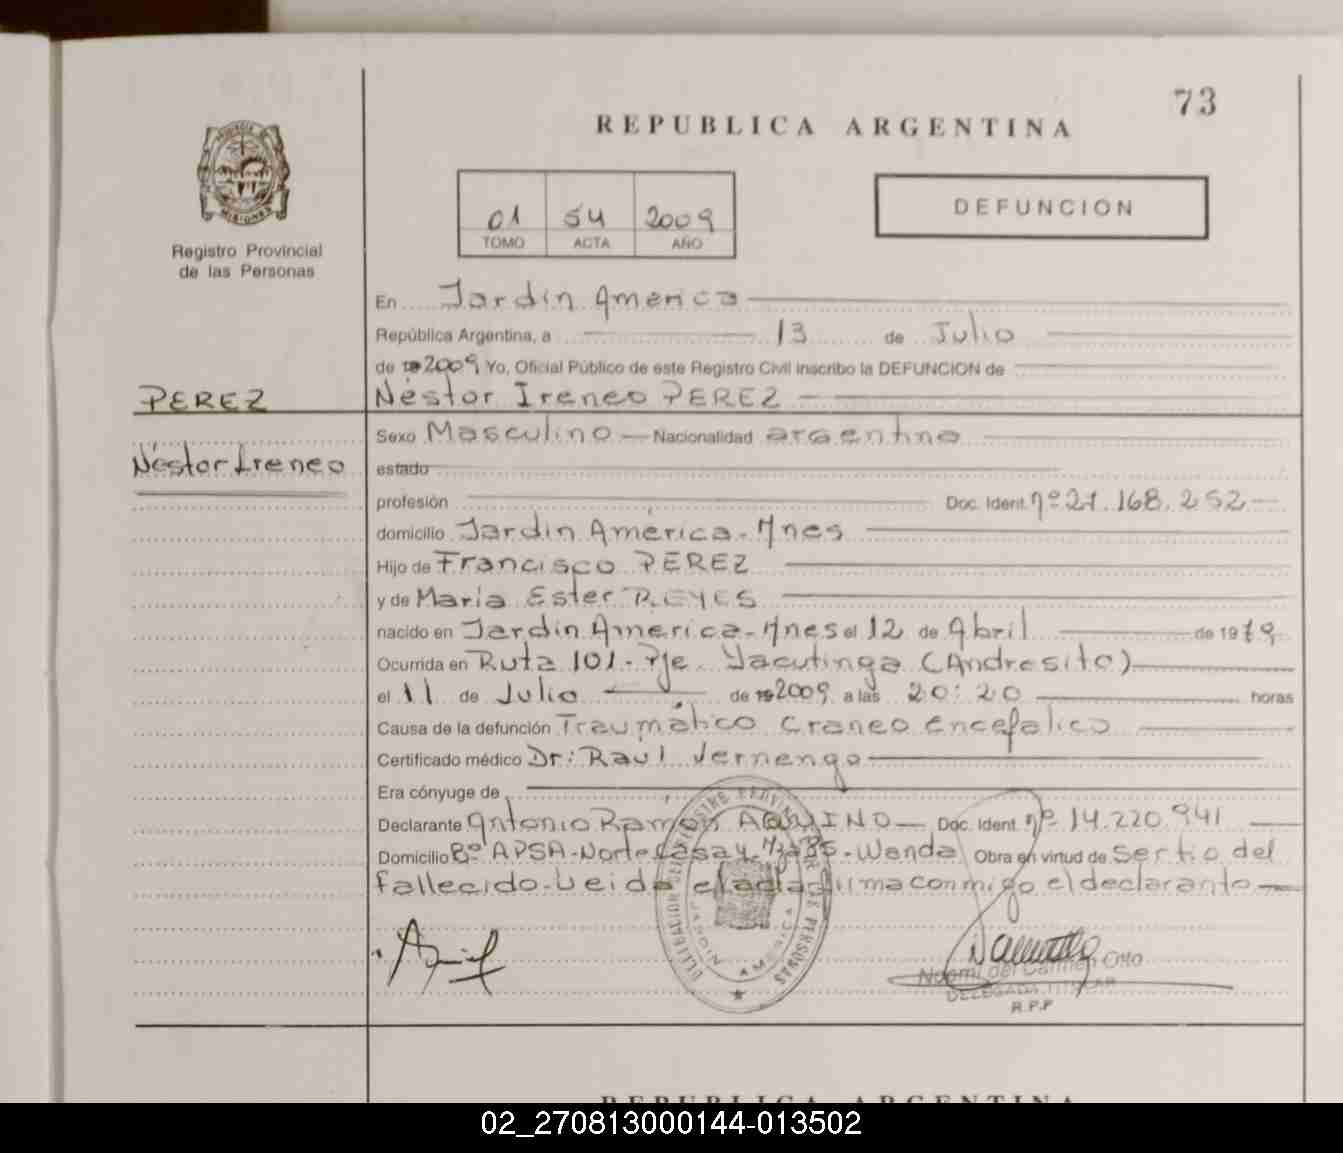 73
REPUBLICA ARGENTINA
01 54 2009
TOMO ACTA AÑO
DEFUNCION
PROVINCIA DE
MISIONES
Registro Provincial
de las Personas
En Jardín América
República Argentina, a 13 de Julio
de 2009 Yo, Oficial Público de este Registro Civil inscribo la DEFUNCION de
PEREZ
Néstor Ireneo PEREZ
Sexo Masculino Nacionalidad argentino
Néstor Ireneo
estado
profesión Doc. Ident. nº 27.168.252
domicilio Jardín América - Mnes
Hijo de Francisco PEREZ
y de María Ester REYES
nacido en Jardín América - Mnes el 12 de Abril de 1979
Ocurrida en Ruta 101 - Pje. Yacutinga (Andresito)
el 11 de Julio de 2009 a las 20:20 horas
Causa de la defunción Traumático craneo encefalico
Certificado médico Dr: Raúl Vernengo
Era cónyuge de
Declarante Antonio Ramón AQUINO Doc. Ident. nº 14.220.941
Domicilio Bº APSA - Norte Casa 4 Mz 35 - Wanda Obra en virtud de ser tio del
fallecido. Leida el acta firma conmigo el declarante
JARDIN AMERICA
Noemi del Carmen
DELEGADA TITULAR
R.P.P
REPUBLICA ARGENTINA
02_270813000144-013502